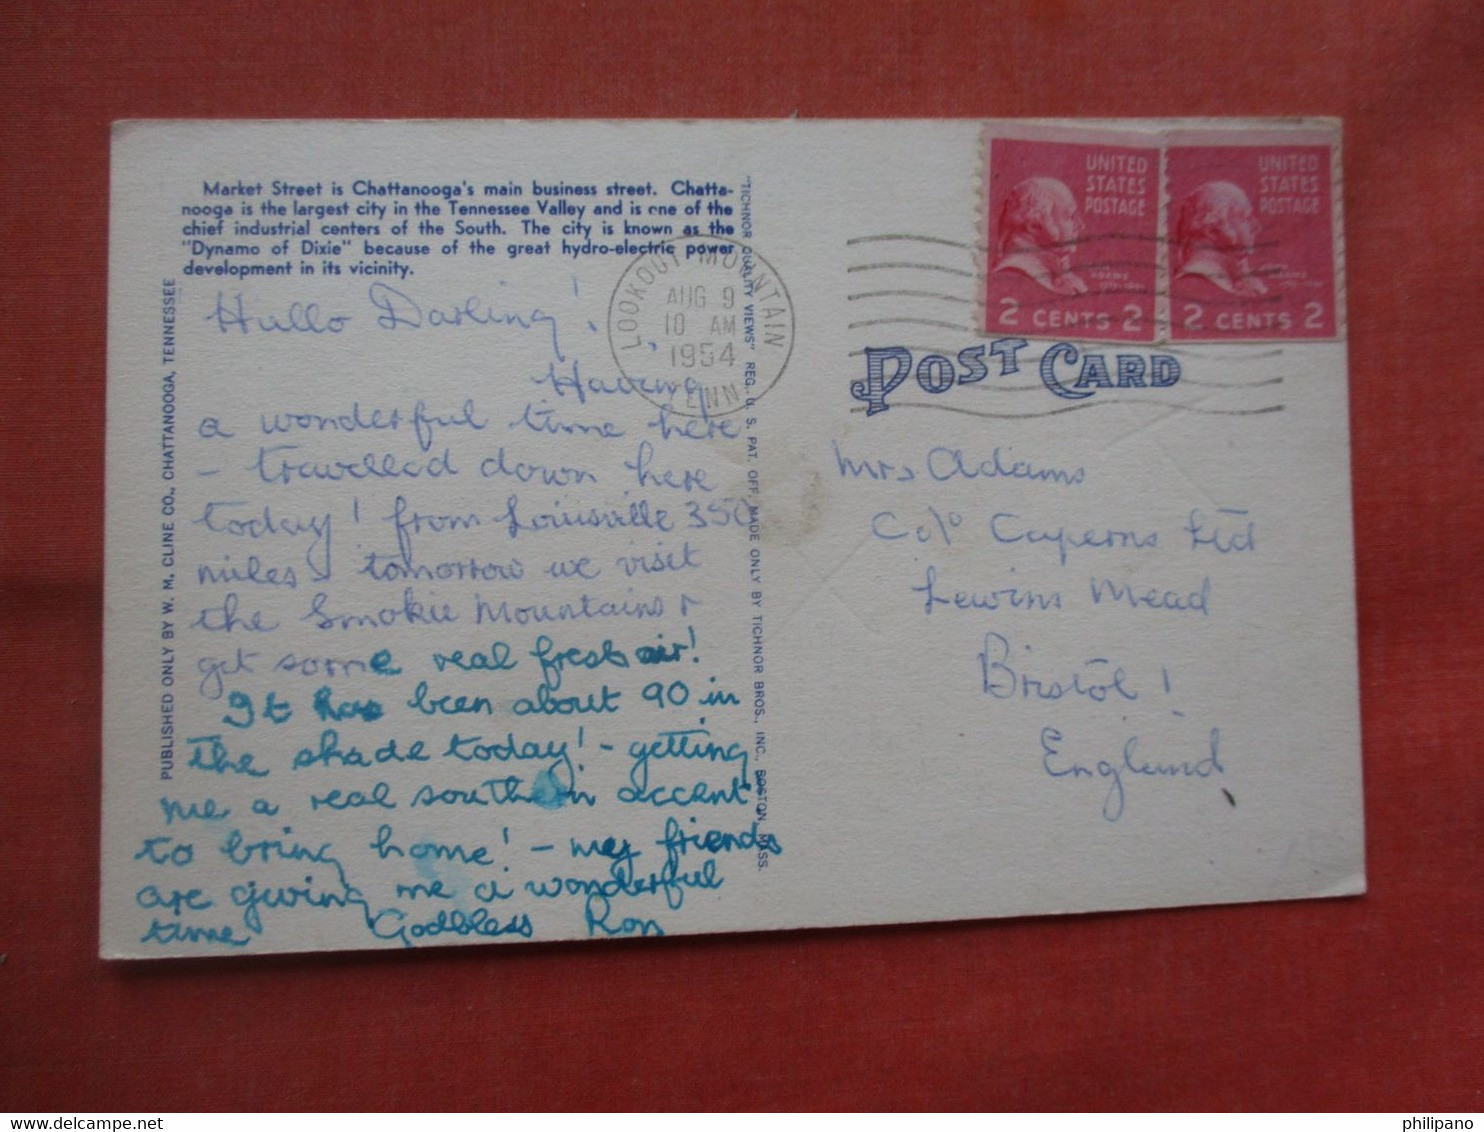 Market Street is Chattanooga's main business street. Chatta-
nooga is the largest city in the Tennessee Valley and is one of the
chief industrial centers of the South. The city is known as the
"Dynamo of Dixie" because of the great hydro-electric power
development in its vicinity.
Hullo Darling!
Having
a wonderful time here
- travelled down here
today! from Louisville 350
miles - tomorrow we visit
the Smokie Mountains &
get some real fresh air!
It has been about 90 in
the shade today! - getting
me a real southern accent
to bring home! - my friends
are giving me a wonderful
time Godbless Ron
PUBLISHED ONLY BY W. M. CLINE CO., CHATTANOOGA, TENNESSEE
"TICHNOR QUALITY VIEWS" REG. U. S. PAT. OFF. MADE ONLY BY TICHNOR BROS., INC., BOSTON, MASS.
LOOKOUT MOUNTAIN
AUG 9
10 AM
1954
TENN.
UNITED
STATES
POSTAGE
ADAMS
2 CENTS 2
UNITED
STATES
POSTAGE
ADAMS
2 CENTS 2
POST CARD
Mrs Adams
C\o Caperns Ltd
Lewins Mead
Bristol!
England
philipano